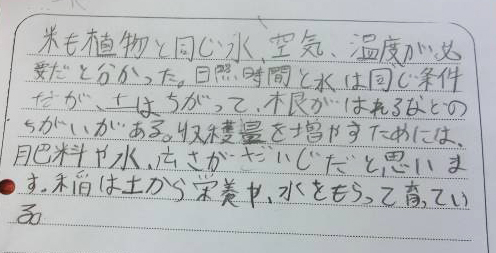 米も植物と同じ水、空気、温度が必
要だと分かった。日照時間と水は同じ条件
だが、土はちがって、根がはれるなどの
ちがいがある。収穫量を増やすためには、
肥料や水、広さがだいじだと思いま
す。稲は土から栄養や、水をもらって育ってい
る